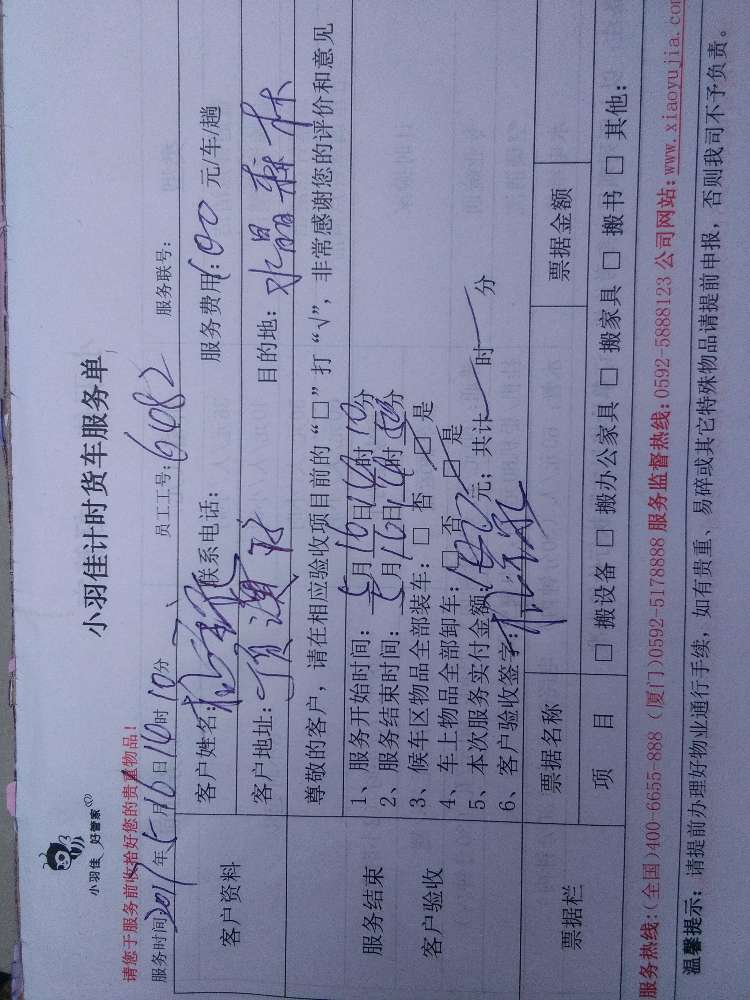 小羽佳 好管家
小羽佳计时货车服务单
请您于服务前收拾好您的贵重物品！
服务时间 年5月16日14时10分 员工工号：6082 服务联号：
客户资料
客户姓名 联系电话： 服务费用：100元/车/趟
客户地址： 目的地：水晶森林
服务结束
客户验收
尊敬的客户，请在相应验收项目前的“□”打“√”，非常感谢您的评价和意见
1、服务开始时间：5月16日14时10分
2、服务结束时间：5月16日 时 分
3、候车区物品全部装车：□ 否 □ 是
4、车上物品全部卸车：□ 否 □ 是
5、本次服务实付金额： 元；共计 时 分
6、客户验收签字：
票据栏
票据名称 票据金额
项 目 □ 搬设备 □ 搬办公家具 □ 搬家具 □ 搬书 □ 其他：
服务热线：(全国)400-6655-888 (厦门)0592-5178888 服务监督热线：0592-5888123 公司网站：www.xiaoyujia.co
温馨提示：请提前办理好物业通行手续，如有贵重、易碎或其它特殊物品请提前申报，否则我司不予负责。